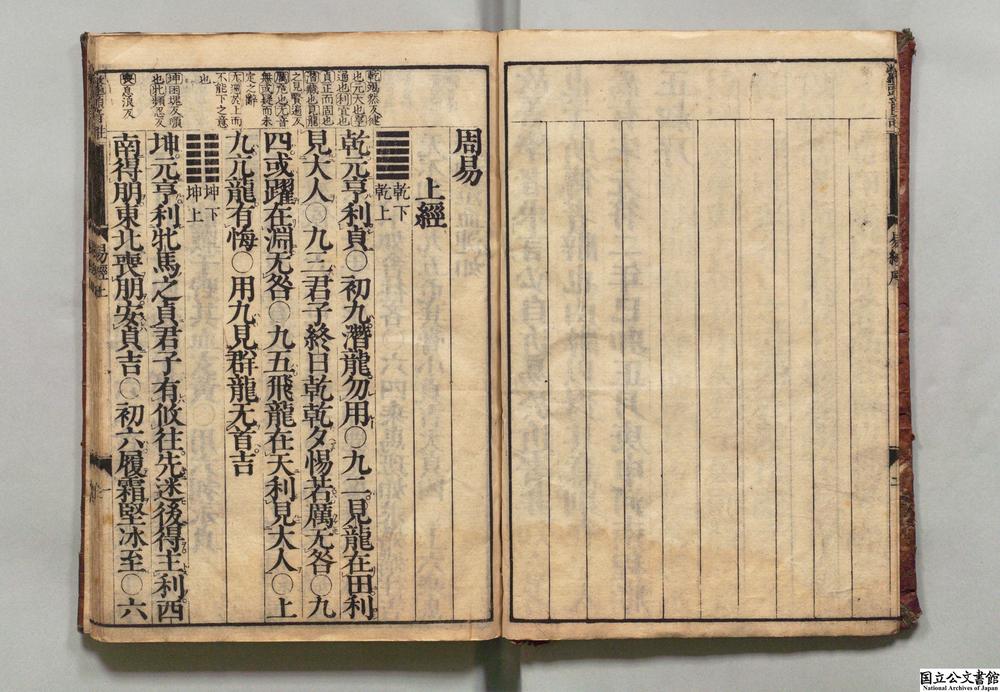 周易
上經
乾下
乾上
乾元亨利貞○初九潛龍勿用○九二見龍在田利
見大人○九三君子終日乾乾夕惕若厲无咎○九
四或躍在淵无咎○九五飛龍在天利見大人○上
九亢龍有悔○用九見群龍无首吉
坤下
坤上
坤元亨利牝馬之貞君子有攸往先迷後得主利西
南得朋東北喪朋安貞吉○初六履霜堅冰至○六
乾竭然反健
也元大也亨
通也利宜也
貞正而固也
潛藏也見龍
之見賢遍反
厲危也无音
無或疑而未
定之辭
亢過於上而
不能下之意
也
坤困塊反順
也牝頻忍反
喪息浪反
易經上
國立公文書館
National Archives of Japan